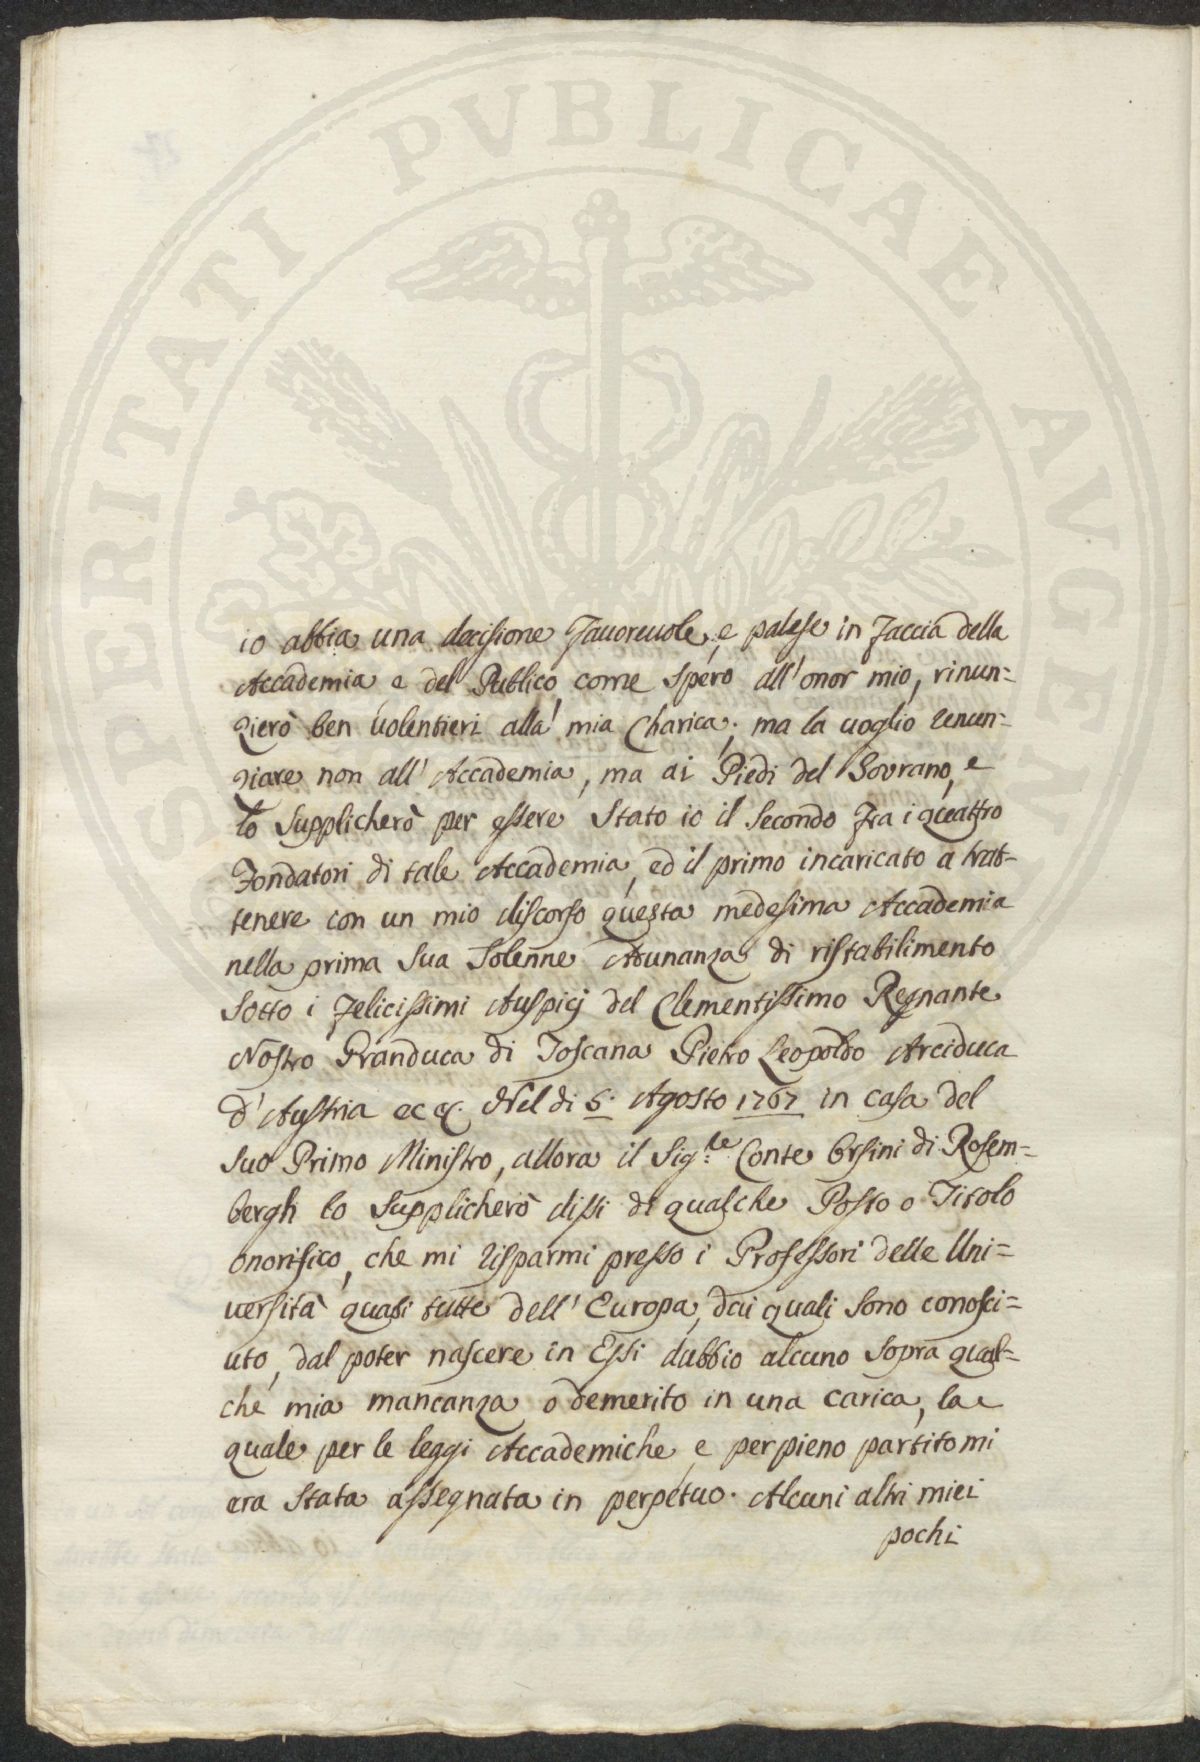 PROSPERITATI PUBLICAE AUGENDAE
io abbia una decisione favorevole, e palese in faccia della
Accademia e del Publico, come spero all'onor mio, rinun=
zierò ben volentieri alla mia Charica; ma la voglio renun=
ziare non all'Accademia, ma ai Piedi del Sovrano, e
lo Supplicherò per essere Stato io il Secondo fra i queattro
Fondatori di tale Accademia, ed il primo incaricato a trat=
tenere con un mio discorso questa medesima Accademia
nella prima Sua Solenne Adunanza di ristabilimento
Sotto i felicissimi Auspicj del Clementissimo Regnante
Nostro Granduca di Toscana Pietro Leopoldo Arciduca
d'Austria ec &. Nel di 5. Agosto 1767 in casa del
Suo Primo Ministro, allora il Sig.re Conte Orsini di Rosem=
bergh lo Supplicherò dissi di qualche Posto o Titolo
onorifico, che mi risparmi presso i Professori delle Uni=
versità quasi tutte dell'Europa, dai quali Sono conosci=
uto, dal poter nascere in Essi dubbio alcuno Sopra qual=
che mia mancanza o demerito in una carica, la
quale per le leggi Accademiche, e per pieno partito mi
era Stata assegnata in perpetuo. Alcuni altri miei
pochi